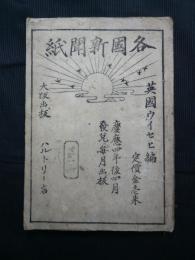 各國新聞紙
英國ウイセヒ編
定價金壱朱
慶應四年後四月
發兌毎月出板
大坂出板
ハルトリー店